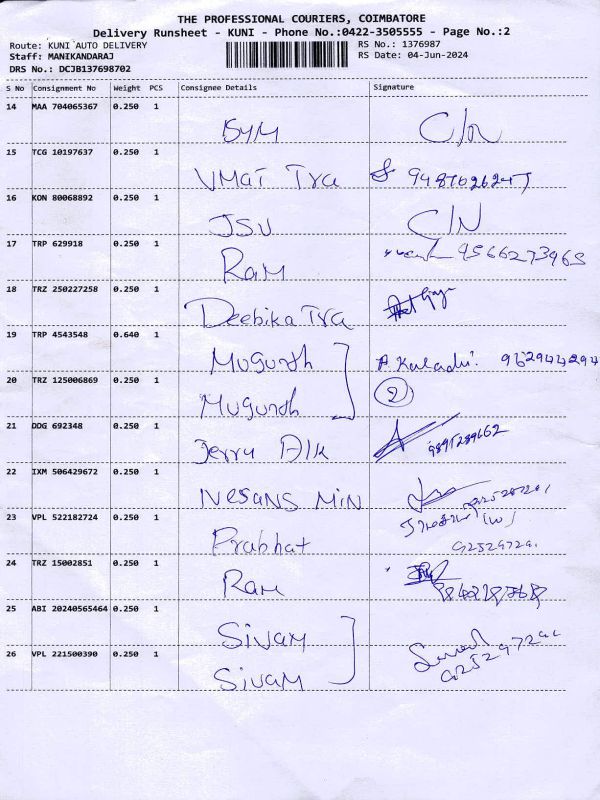 THE PROFESSIONAL COURIERS, COIMBATORE
Delivery Runsheet - KUNI - Phone No.:0422-3505555 - Page No.:2
Route: KUNI AUTO DELIVERY RS No.: 1376987
Staff: MANIKANDARAJ RS Date: 04-Jun-2024
DRS No.: DCJB137698702
S No Consignment No Weight PCS Consignee Details Signature
14 MAA 704065367 0.250 1
C/N
15 TCG 10197637 0.250 1
VMAT Tra
16 KON 80068892 0.250 1
JSV C/N
17 TRP 629918 0.250 1
Ram 9566273965
18 TRZ 250227258 0.250 1
Deebika Tra
19 TRP 4543548 0.640 1
Mugunth A. Kaladhi. 9629444294
20 TRZ 125006869 0.250 1
Mugunth 2
21 DDG 692348 0.250 1
Jerry Alk
22 IXM 506429672 0.250 1
Nesans Min
23 VPL 522182724 0.250 1
Prabhat
24 TRZ 15002851 0.250 1
Ram
25 ABI 20240565464 0.250 1
Sivam
26 VPL 221500390 0.250 1
Sivam